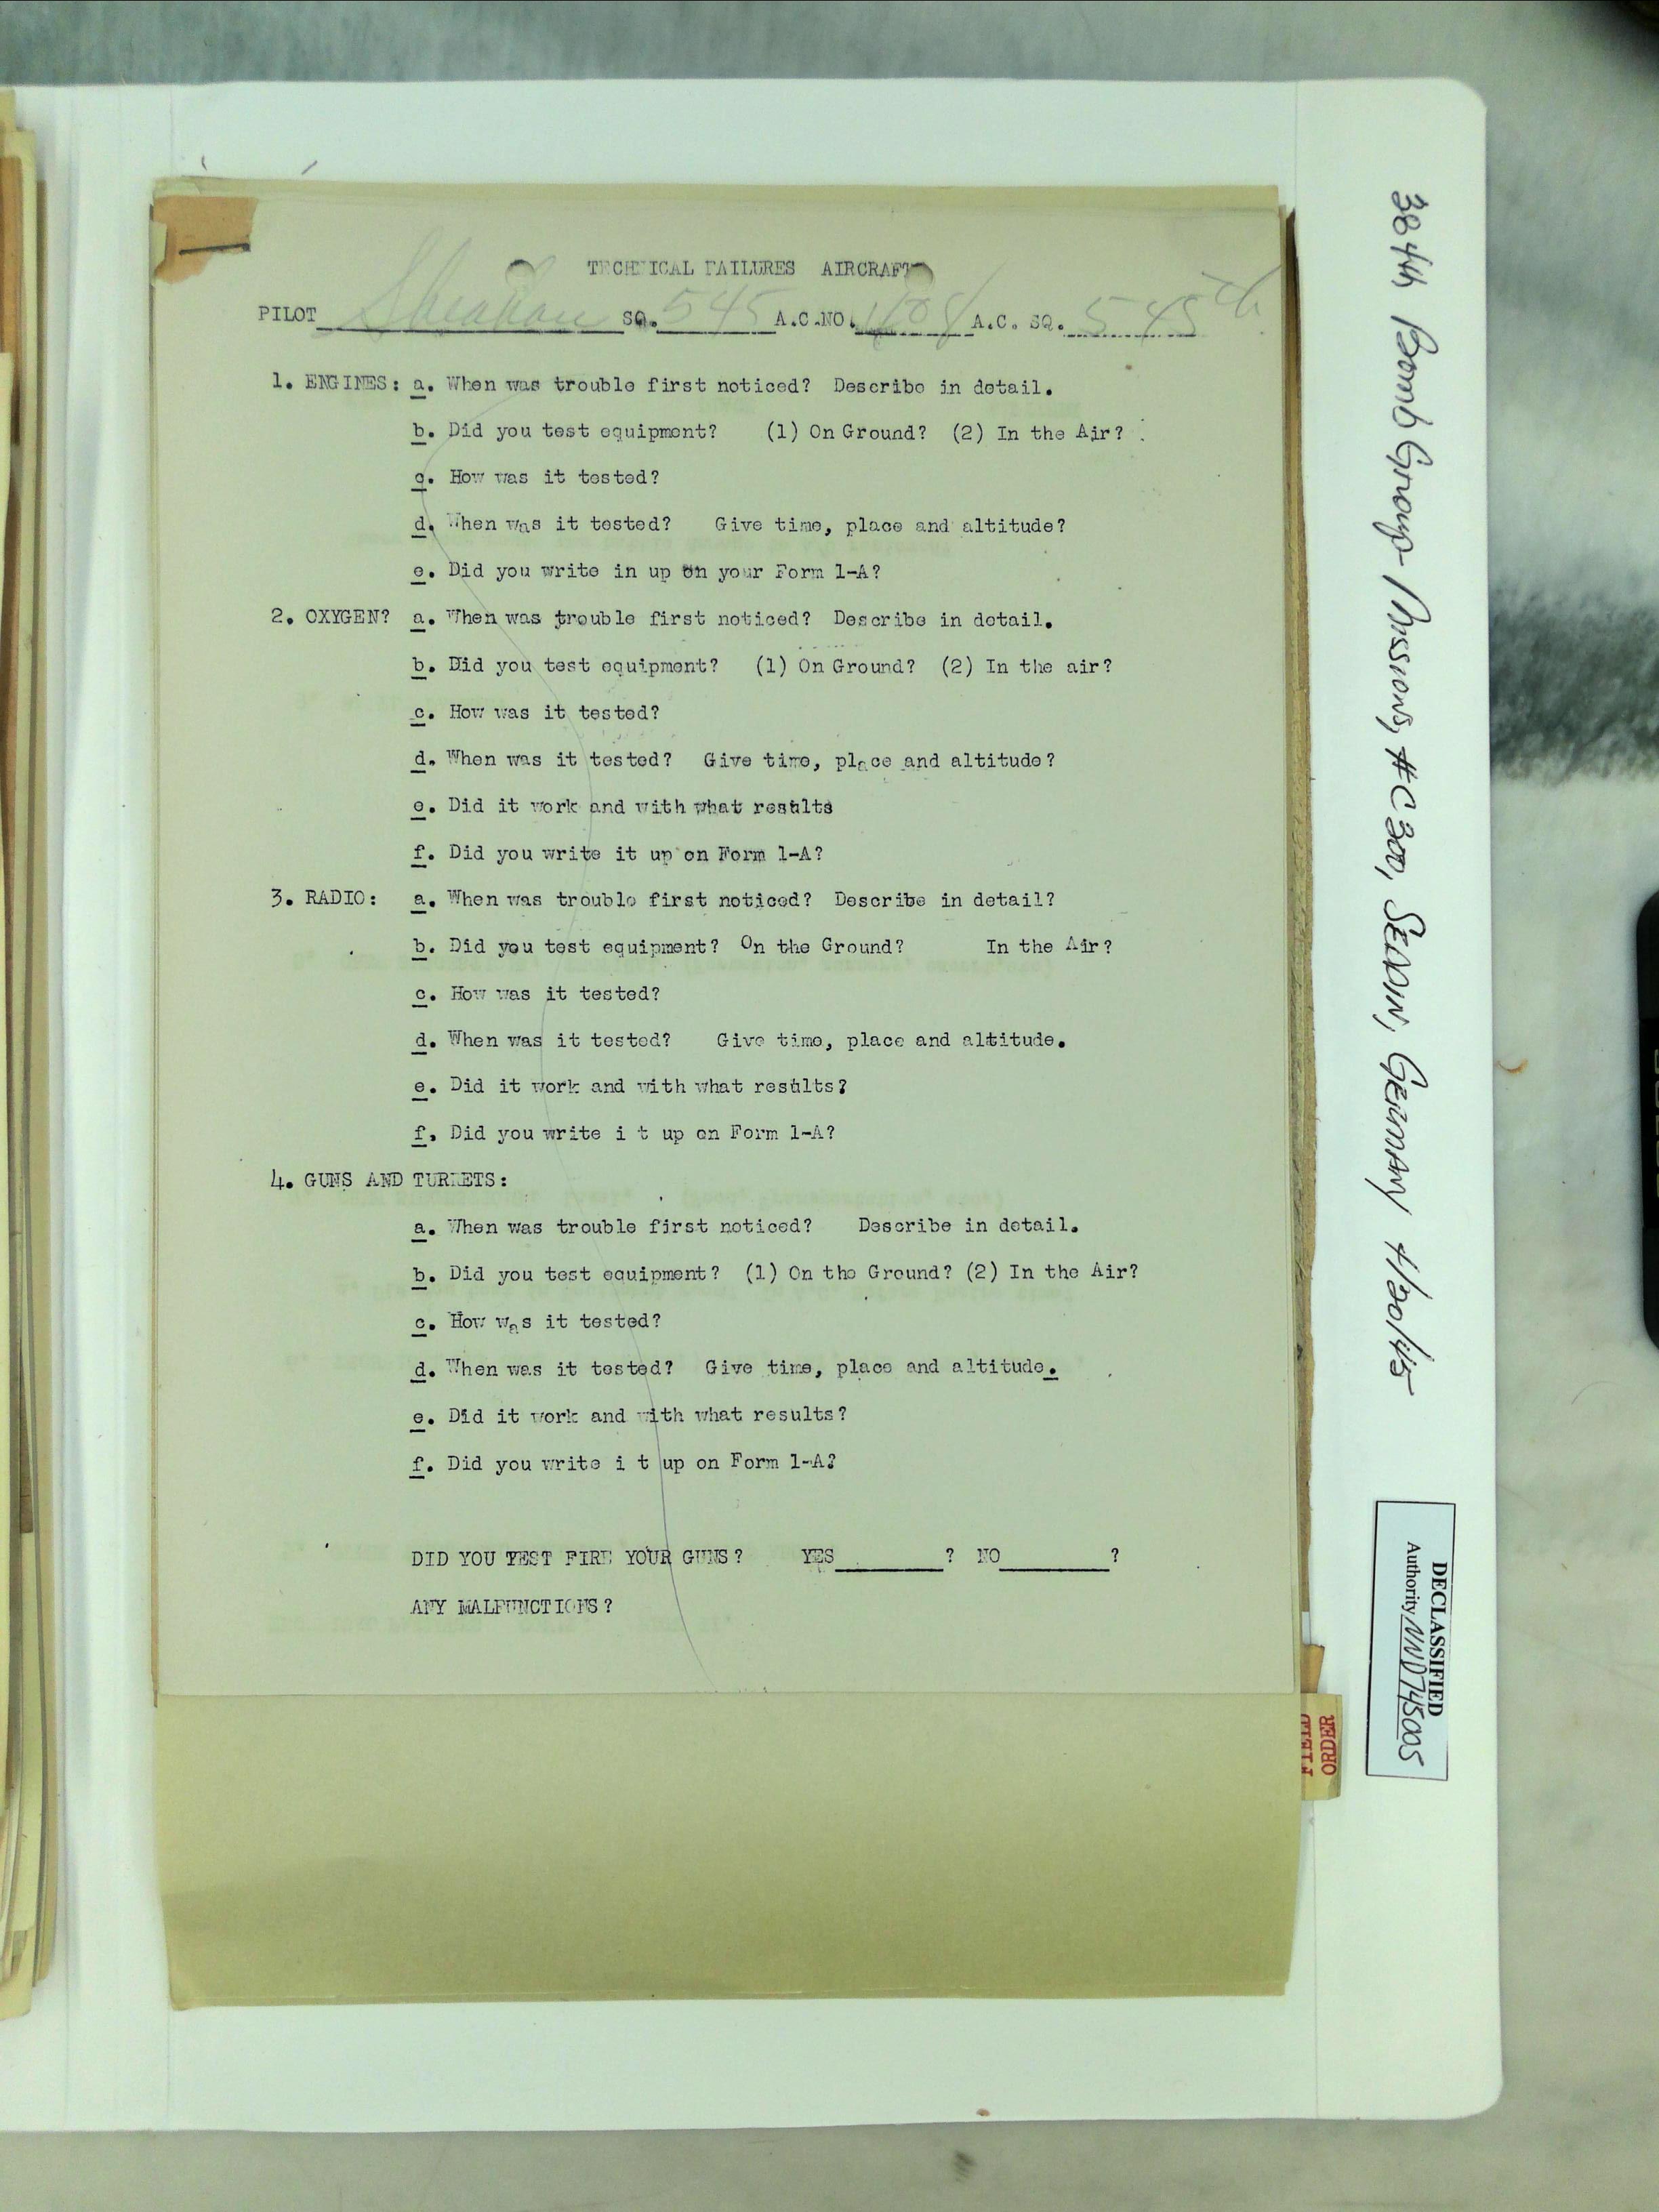 TECHNICAL FAILURES AIRCRAFT
PILOT Sheahan SQ. 545 A.C.NO. A.C. SQ. 545th
1. ENGINES: a. When was trouble first noticed? Describe in detail.
b. Did you test equipment? (1) On Ground? (2) In the Air?
c. How was it tested?
d. When was it tested? Give time, place and altitude?
e. Did you write in up on your Form 1-A?
2. OXYGEN? a. When was trouble first noticed? Describe in detail.
b. Did you test equipment? (1) On Ground? (2) In the air?
c. How was it tested?
d. When was it tested? Give time, place and altitude?
e. Did it work and with what results
f. Did you write it up on Form 1-A?
3. RADIO: a. When was trouble first noticed? Describe in detail?
b. Did you test equipment? On the Ground? In the Air?
c. How was it tested?
d. When was it tested? Give time, place and altitude.
e. Did it work and with what results?
f. Did you write i t up on Form 1-A?
4. GUNS AND TURRETS:
a. When was trouble first noticed? Describe in detail.
b. Did you test equipment? (1) On the Ground? (2) In the Air?
c. How was it tested?
d. When was it tested? Give time, place and altitude.
e. Did it work and with what results?
f. Did you write i t up on Form 1-A?
DID YOU TEST FIRE YOUR GUNS? YES ? NO ?
ANY MALFUNCTIONS?
FIELD
ORDER
384th Bomb Group- Missions, #C 300, SEDDIN, GERMANY 4/20/45
DECLASSIFIED
Authority NND745005